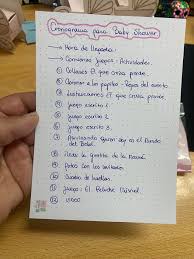 Cronograma para Baby Shower
→ Hora de llegada:
→ Comienzo juegos - Actividades.
① Collares El que cruza pierde.
② Conocer a los papitos - Reyes del evento
③ Instrucciones El que cruza pierde.
④ Juego escrito 1.
⑤ Juego escrito 2.
⑥ Juego escrito 3.
⑦ Adivinando quien soy en el Mundo del Bebé.
⑧ Mides la guatita de la Mamá
⑨ Fotos con los invitados
⑩ Cuadro de huellas
⑪ Juego: El Peluche
⑫ video